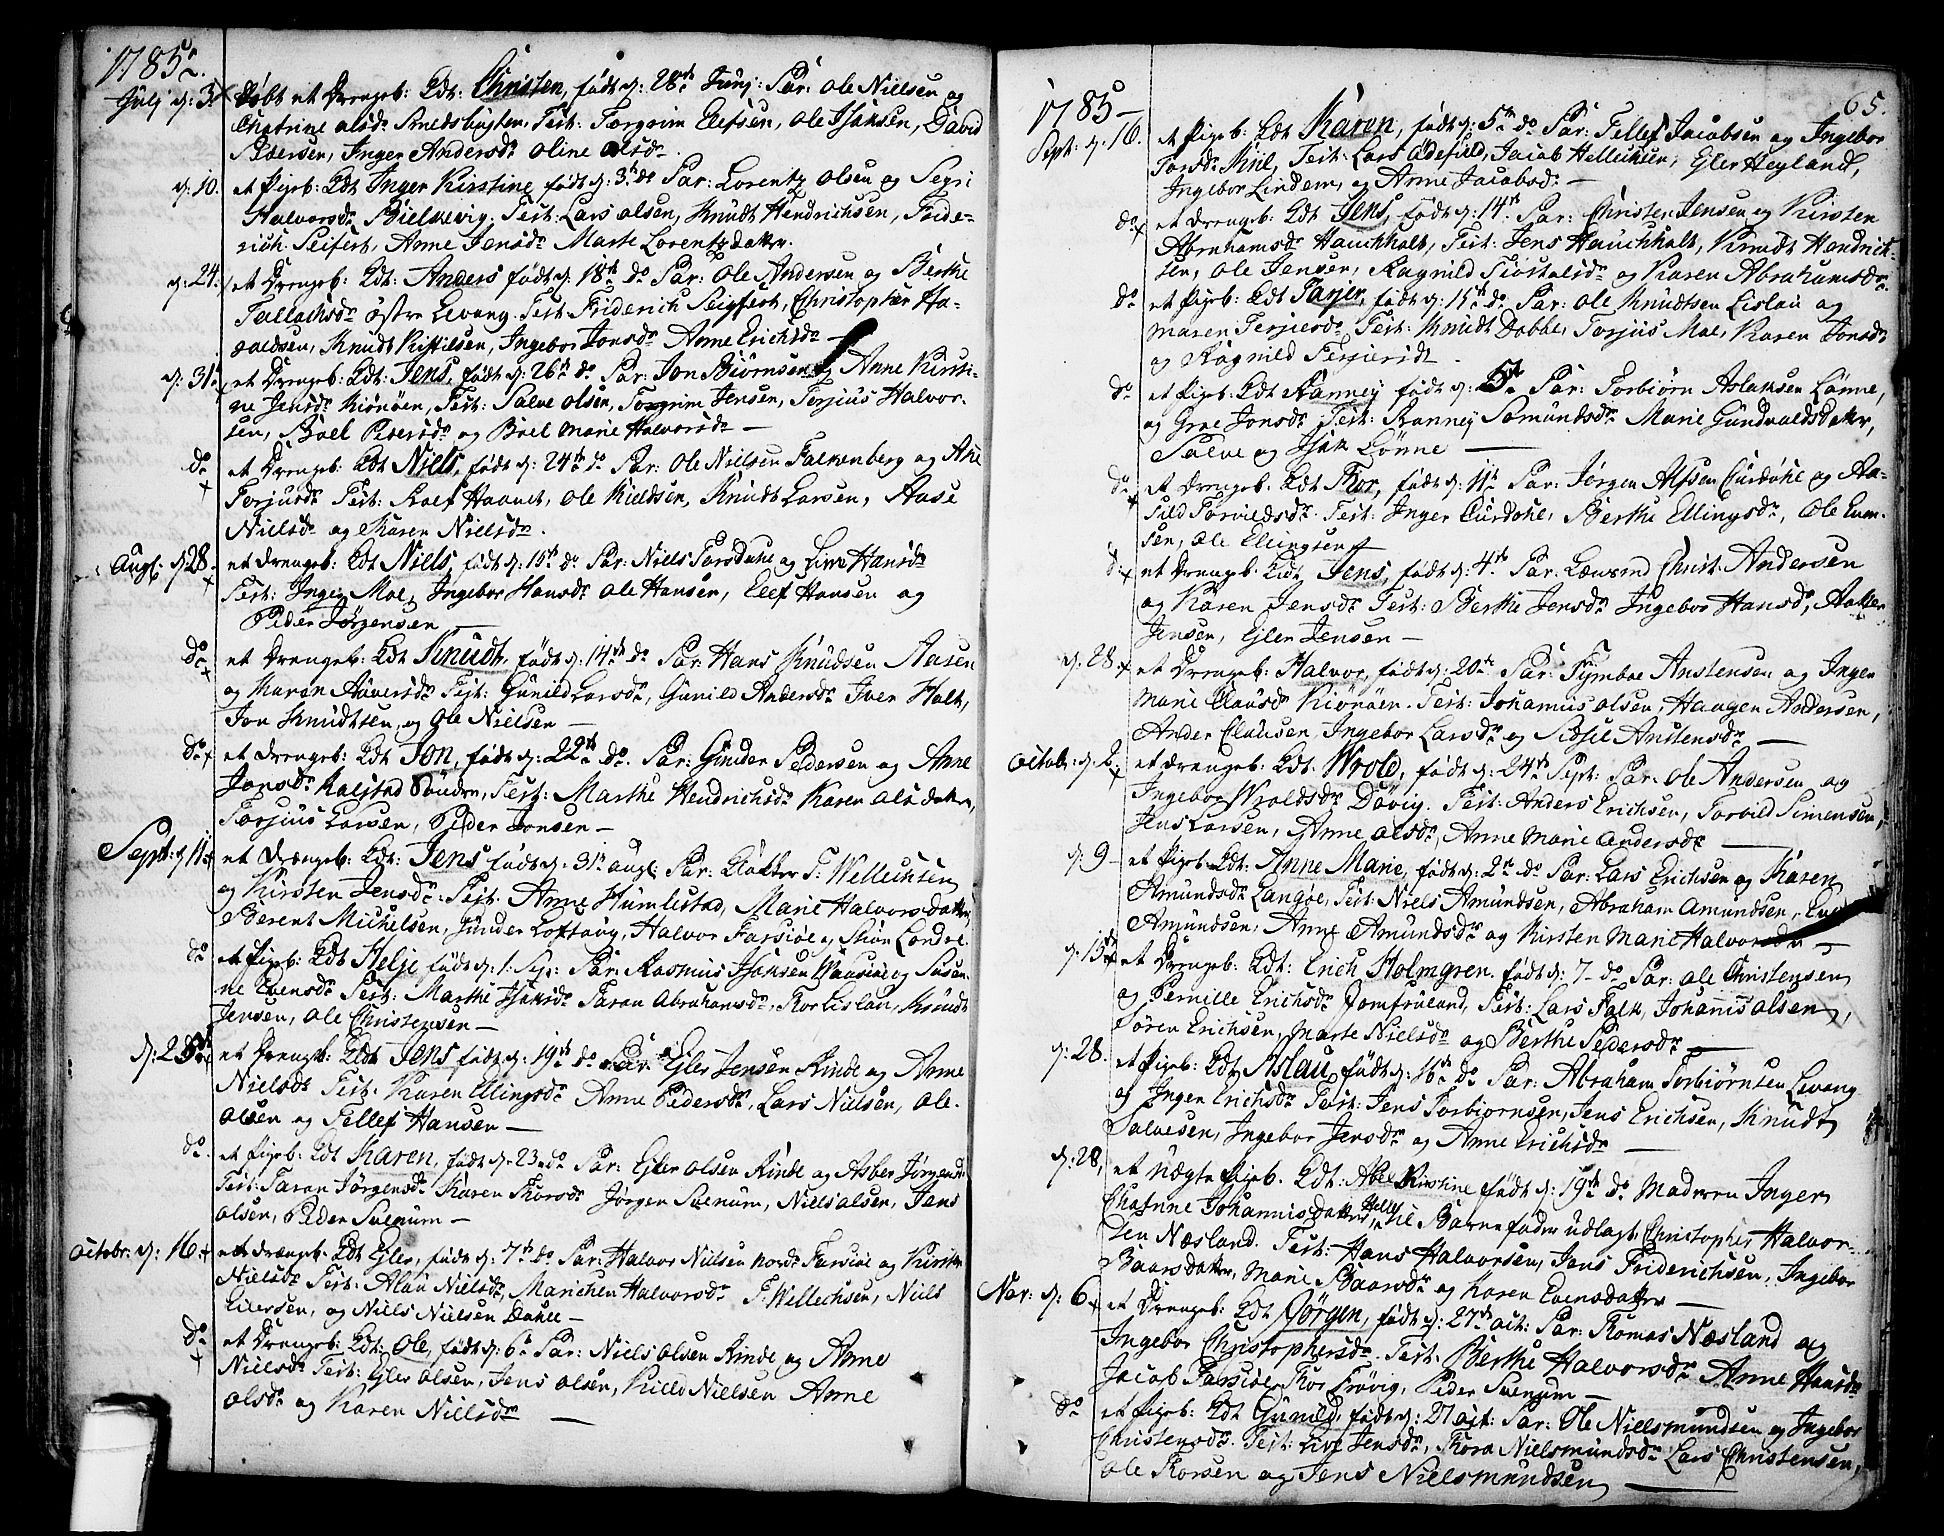 1785.
Julj d: 3 Døbt et Drengeb: Kdt: Christen, født d: 28de Junj: Par: Ole Nielsen og
Chatrine Olsdr Smedsbugten, Test: Torgrim Elefsen, Ole Isaksen, David
Pedersen, Inger Andersdr Oline Olsdr.
d: 10. et Pigeb: Kdt Inger Kirstine født d: 3de do Par: Lorentz Olsen og Segri
Halvorsdr Bielkevig. Test: Lars Olsen, Knudt Hendrichsen, Fride-
rich Seifert, Anne Jensdr Marte Lorentzdatter.
d: 24. et Drengeb: Kdt: Anders født d: 18de do Par: Ole Andersen og Berthe
Tallachsdr Østre Levang. Test Friderich Seigfert, Christopher Ha-
raldsen, Knudt Kittilsen, Ingebor Jonsdr Anne Erichsdr —
d: 31. et Drengeb: Kdt: Jens, født d: 26de do Par: Jon Biørnsen og Anne Kirsti-
ne Jensdr Kiønøen, Test: Salve Olsen, Torgrim Jensen, Torjus Halvor-
sen, Boel Pedersdr og Boel Marie Halvorsdr —
do et Drengeb: Kdt Niels, født d: 24de do Par: Ole Nielsen Falkenberg og Ane
Torjusdr Test: Roef Havnet, Ole Kieldsen, Knudt Larsen, Aase
Nielsdr og Karen Nielsdr.
Aug: d 28. et Drengeb: Kdt Niels, født d: 15de do Par: Niels Torsdahl og Live Hansdr
Test: Inger Moe, Ingebor Hansdr Ole Hansen, Elef Hansen og
Peder Jørgensen —
do et Drengeb: Kdt Knudt, født d: 14de do Par: Hans Knudsen Aasen
og Karen Halversdr Test: Gunild Larsdr, Gunild Andersdr Iver Holt,
Jon Knudtsen og Ole Nielsen —
do et Drengeb: Kdt Jon, født d: 22de do. Par: Gunder Pedersen og Anne
Jonsdr Kalstad Søndre, Test: Marthe Hendrichsdr Karen Olsdatter,
Torjus Larsen, Peder Jonsen —
Sept: d 11. et Drengeb: Kdt: Jens født d: 31te aug: Par: T: Wellechsen
og Kirsten Jensdr. Test: Anne Humlestad, Marie Halvorsdatter,
Berent Michelsen, Gunder Loftøug, Halvor Farsiøe
do et Pigeb: Kdt Helje født d: 1. Sep: Par: Rasmus Isaksen og Susan-
ne Evensdr Test: Marthe Isaksdr Taran Abrahamsdr, Thor Lislau, Knudt
Jensen, Ole Christensen —
d: 25de et Drengeb: Kdt Jens født d: 19de do Par: Ejler Jensen Rinde og Anne
Nielsdr Test: Karen Ellingsdr Anne Pedersdr, Lars Nielsen, Ole
Olsen og Tellef Hansen —
do et Pigeb: Kdt Karen, født d: 23de do Par: Ejler Olsen Rinde og Asber Jørgensdr
Test: Taran Jørgensdr Karen Thorsdr Jørgen Suenum, Niels Olsen, Jens
Olsen, Peder Suenum —
Octobr: d: 16. et Drengeb: Kdt Ejler, født d: 7de do Par: Halvor Nielsen nordr Farsiøe og Kirsten
Nielsdr Test: Alau Nielsdr, Marichen Halvorsdr T: Wellechsen, Niels
Eilersen, og Niels Nielsen Dahle —
do et Drengeb: Kdt: Ole, født d: 6te Par: Niels Olsen Rinde og Anne
Nielsdr Test: Ejler Olsen, Jens Olsen, Kield Nielsen Anne
Olsdr og Karen Nielsdr —
65.
1785 —
Sept: d. 16. et Pigeb: Kdt Karen, født d: 5te do Par: Tellef Jacobsen og Ingebor
Torsdr Kiil, Test: Lars Ødefield, Jacob Hellechsen, Ejler Heyland,
Ingebor Lindem, og Anne Jacobsdr —
do et Drengeb: Kdt Jens, født d: 14de Par: Christen Jensen og Kirsten
Abrahamsdr Hauchholt, Test: Jens Hauchholt, Knudt Hendrich-
sen, Ole Jensen, Ragnild og Karen Abrahamsdr
do et Pigeb: Kdt Tarjer, født d: 15de do Par: Ole Knudtsen Lislau og
Maren Terjersdr Test: Knudt Dobbe, Torjus Moe, Karen Jonsdr
og Ragnild Terjersdt.
do et Pigeb: Kdt Ranney født d: 5te Par: Torbiørn Aslaksen Lønne,
og Groe Jonsdr Test: Ranney Somundsdr Marie Gundvaldsdatter,
Salve og Isak Lønne —
do et Drengeb. Kdt Thor, født d: 11te Par: Jørgen Alfsen Eurdahl og Aa-
sild Torvildsdr Test: Inger Eurdahl, Berthe Ellingsdr, Ole Even-
sen, Ole Ellingsen —
d. et Drengeb. Kdt Jens, født d: 4de Par: Christ: Andersen
og Karen Jensdr Test: Berthe Jensdr Ingebor Hansdr,
Jensen, Ejler Jensen —
d: 28. et Drengeb: Kdt: Halvor, født d: 20de Par: Symboe Anstensen og Inger
Marie Clausdr Kiønøen. Test: Johannes Olsen, Haagen Andersen,
Ander Clausen, Ingebor Larsdr og Sidsel Anstensdr —
Octobr: d. 2. et Drengeb: Kdt: Wrold, født d: 24de Sept: Par: Ole Andersen og
Ingebor Wroldsdr Døvig. Test: Anders Erichsen, Torvild Simensen,
Jens Larsen, Anne Olsdr, Anne Marie Andersdr —
d. 9 — et Pigeb: Kdt: Anne Marie, født d: 2den do Par: Lars Erichsen og Karen
Amundsdr Langøe, Test: Niels Amundsen, Abraham Amundsen,
Amundsen, Anne Amundsdr og Kirsten Marie Halvorsdr —
d: 15de et Drengeb: Kdt: Erich Holmgren. født d: 7— do Par: Ole Christensen
og Pernille Erichsdr Jomfruland, Test: Lars Falk, Johannis Olsen,
Søren Erichsen, Marte Nielsdr og Berthe Pedersdr —
d: 28. et Pigeb: Kdt Aslau, født d: 16de do Par: Abraham Torbiørnsen Levang
og Inger Erichsdr Test: Jens Torbiørnsen, Jens Erichsen, Knudt
Salvesen, Ingebor Jensdr og Anne Erichsdr —
d: 28, et uægte Pigeb. Kdt: Abel Kirstine født d: 19de do Moderen Inger
Chatrine Johannisdatter Helle, til Barnefader udlagt Christopher Halvor-
sen Næsland. Test: Hans Halvorsen, Jens Friderichsen, Ingebor
Baarsdatter, Marie Baarsdr og Karen Evensdatter —
Nov: d: 6. et Drengeb: Kdt Jørgen, født d: 27de oct: Par: Thomas Næsland og
Ingebor Christophersdr. Test: Berthe Halvorsdr Anne Hansdr
Jacob Farsiøe, Thor Frøvig, Peder Suenum —
do et Pigeb: Kdt Gunild, født d: 27 oct: Par: Ole Nielsmundsen og Ingebor
Christensdr. Test: Live Jensdr, Thora Nielsmundsdr Lars Christensen,
Ole Thorsen og Jens Nielsmundsen —